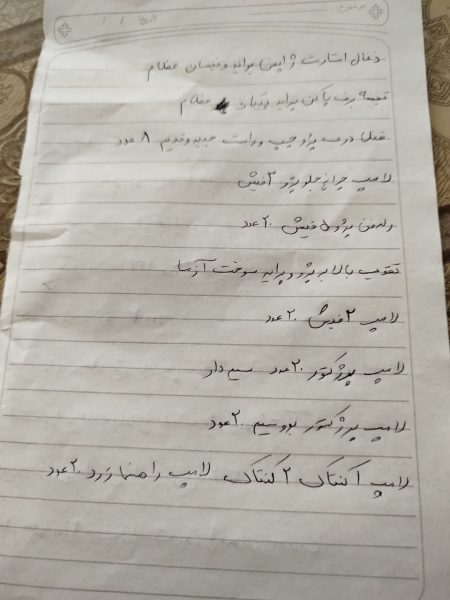 موضوع: تاریخ: / /
ذغال استارت ژاپن پراید و نیسان عظام
تیغه برف پاکن پراید و نیسان عظام
قفل درب پژو چپ و راست جدید و قدیم ۸ عدد
لامپ چراغ جلو پژو ۳ فیش
رله فن پژو ۵ فیش ۲۰ عدد
تقویت بالا به پژو و پراید سوخت آزما
لامپ ۲ فیش ۲۰ عدد
لامپ پرژکتور ۲۰ عدد سیم دار
لامپ پرژکتور بدو سیم ۲۰ عدد
لامپ ۱ کنتاک ۲ کنتاک لامپ راهنما زرد ۲۰ عدد